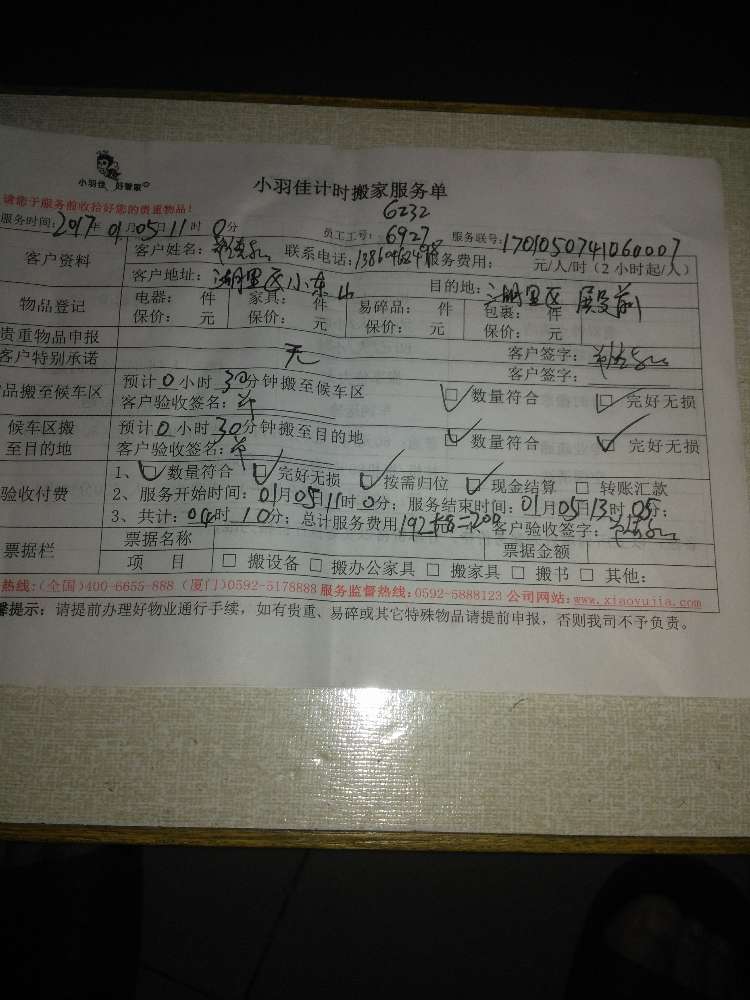 小羽佳 好管家
小羽佳计时搬家服务单
请您于服务前收拾好您的贵重物品!
6232
服务时间:2017年01月05日11时0分 员工工号:6927 服务联号:1701050741060007
客户资料 客户姓名: 联系电话: 服务费用: 元/人/时(2小时起/人)
客户地址:湖里区小东山 目的地:湖里区 前
物品登记 电器: 件 家具: 件 易碎品: 件 包裹: 件
保价: 元 保价: 元 保价: 元 保价: 元
贵重物品申报 无 客户签字:
客户特别承诺 客户签字:
品搬至候车区 预计0小时30分钟搬至候车区 □数量符合 □完好无损
客户验收签名:
候车区搬至目的地 预计0小时30分钟搬至目的地 □数量符合 □完好无损
客户验收签名:
验收付费 1、□数量符合 □完好无损 □按需归位 □现金结算 □转账汇款
2、服务开始时间:01月05日11时0分;服务结束时间:01月05日13时05分;
3、共计:04时10分;总计服务费用192+8=200 客户验收签字:
票据栏 票据名称 票据金额
项 目 □搬设备 □搬办公家具 □搬家具 □搬书 □其他:
热线:(全国)400-6655-888 (厦门)0592-5178888 服务监督热线:0592-5888123 公司网站:www.xiaoyujia.com
馨提示:请提前办理好物业通行手续,如有贵重、易碎或其它特殊物品请提前申报,否则我司不予负责。